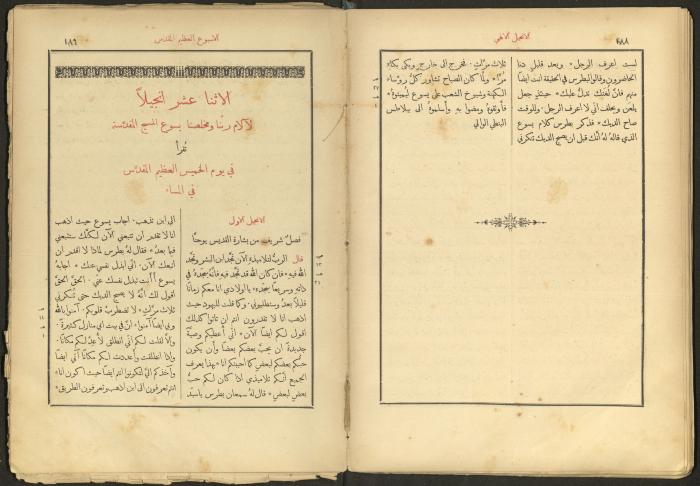 الانجيل الالهي
لست اعرف الرجل* وبعد قليل دنا
الحاضرون وقالوا لبطرس في الحقيقة انت ايضاً
منهم فانّ لغتك تدلّ عليك* حينئذٍ جعل
يلعن ويحلف اني لا اعرف الرجل. وللوقت
صاح الديك* فذكر بطرس كلام يسوع
الذي قاله لهُ أنّك قبل ان يصيح الديك تنكرني
ثلاث مرّاتٍ. فخرج الى خارج وبكى بكاءً
مرًّا* ولما كان الصباح تشاور كلّ رؤساء
الكهنة وشيوخ الشعب على يسوع ليميتوهُ*
فاوثقوهُ ومضوا به وأسلموهُ الى بيلاطس
البنطي الوالي
الاسبوع العظيم المقدس
١٨٩
الاثنا عشر انجيلاً
لآلام ربّنا ومخلصنا يسوع المسيح المقدّسة
تُقرأ
في يوم الخميس العظيم المقدّس
في المساء
الانجيل الاول
فصلٌ شريف من بشارة القديس يوحنّا
قال الربُّ لتلاميذهِ الآن تمجّد ابن البشر وتمجّد
الله فيهِ* فان كان الله قد تمجّد فيهِ فانّهُ سيمجّدهُ في
ذاتهِ وسريعاً سيمجّدهُ* يا اولادي انا معكم زماناً
قليلاً بعدُ وستطلبوني. وكما قلت لليهود حيث
اذهب انا لا تقدرون انتم ان تأتوا كذلك
اقول لكم ايضاً الآن* اني أعطيكم وصيّةً
جديدةً ان يحبّ بعضكم بعضاً وأن يكون
حبّكم بعضكم لبعضٍ كما احببتكم انا* بهذا يعرف
الجميع أنّكم تلاميذي اذا كان لكم حبٌّ
بعضٍ لبعضٍ* قال لهُ سمعان بطرس يا سيّد
الى اين تذهب. اجاب يسوع حيث اذهب
انا لا تقدم ان تتبعني الآن لكنّك ستتبعني
فيما بعدُ* فقال لهُ بطرس لماذا لا اقدر ان
أتبعك الآن. اني ابذل نفسي عنك* اجابهُ
يسوع أأنت تبذل نفسك عني. الحقَّ الحقَّ
اقول لك أنّهُ لا يصيح الديك حتى تنكرني
ثلاث مرّاتٍ* لا تضطرب قلوبكم. آمنوا بالله
وبي ايضاً آمنوا* انّ في بيت ابي منازل كثيرةً.
وإلّا لقلت لكم اني انطلق لأُعِدّ لكم مكاناً.
وإذا انطلقت وأعددت لكم مكاناً آتي ايضاً
وآخذكم اليَّ لتكونوا انتم ايضاً حيث اكون انا*
انتم تعرفون الى اين اذهب وتعرفون الطريق*